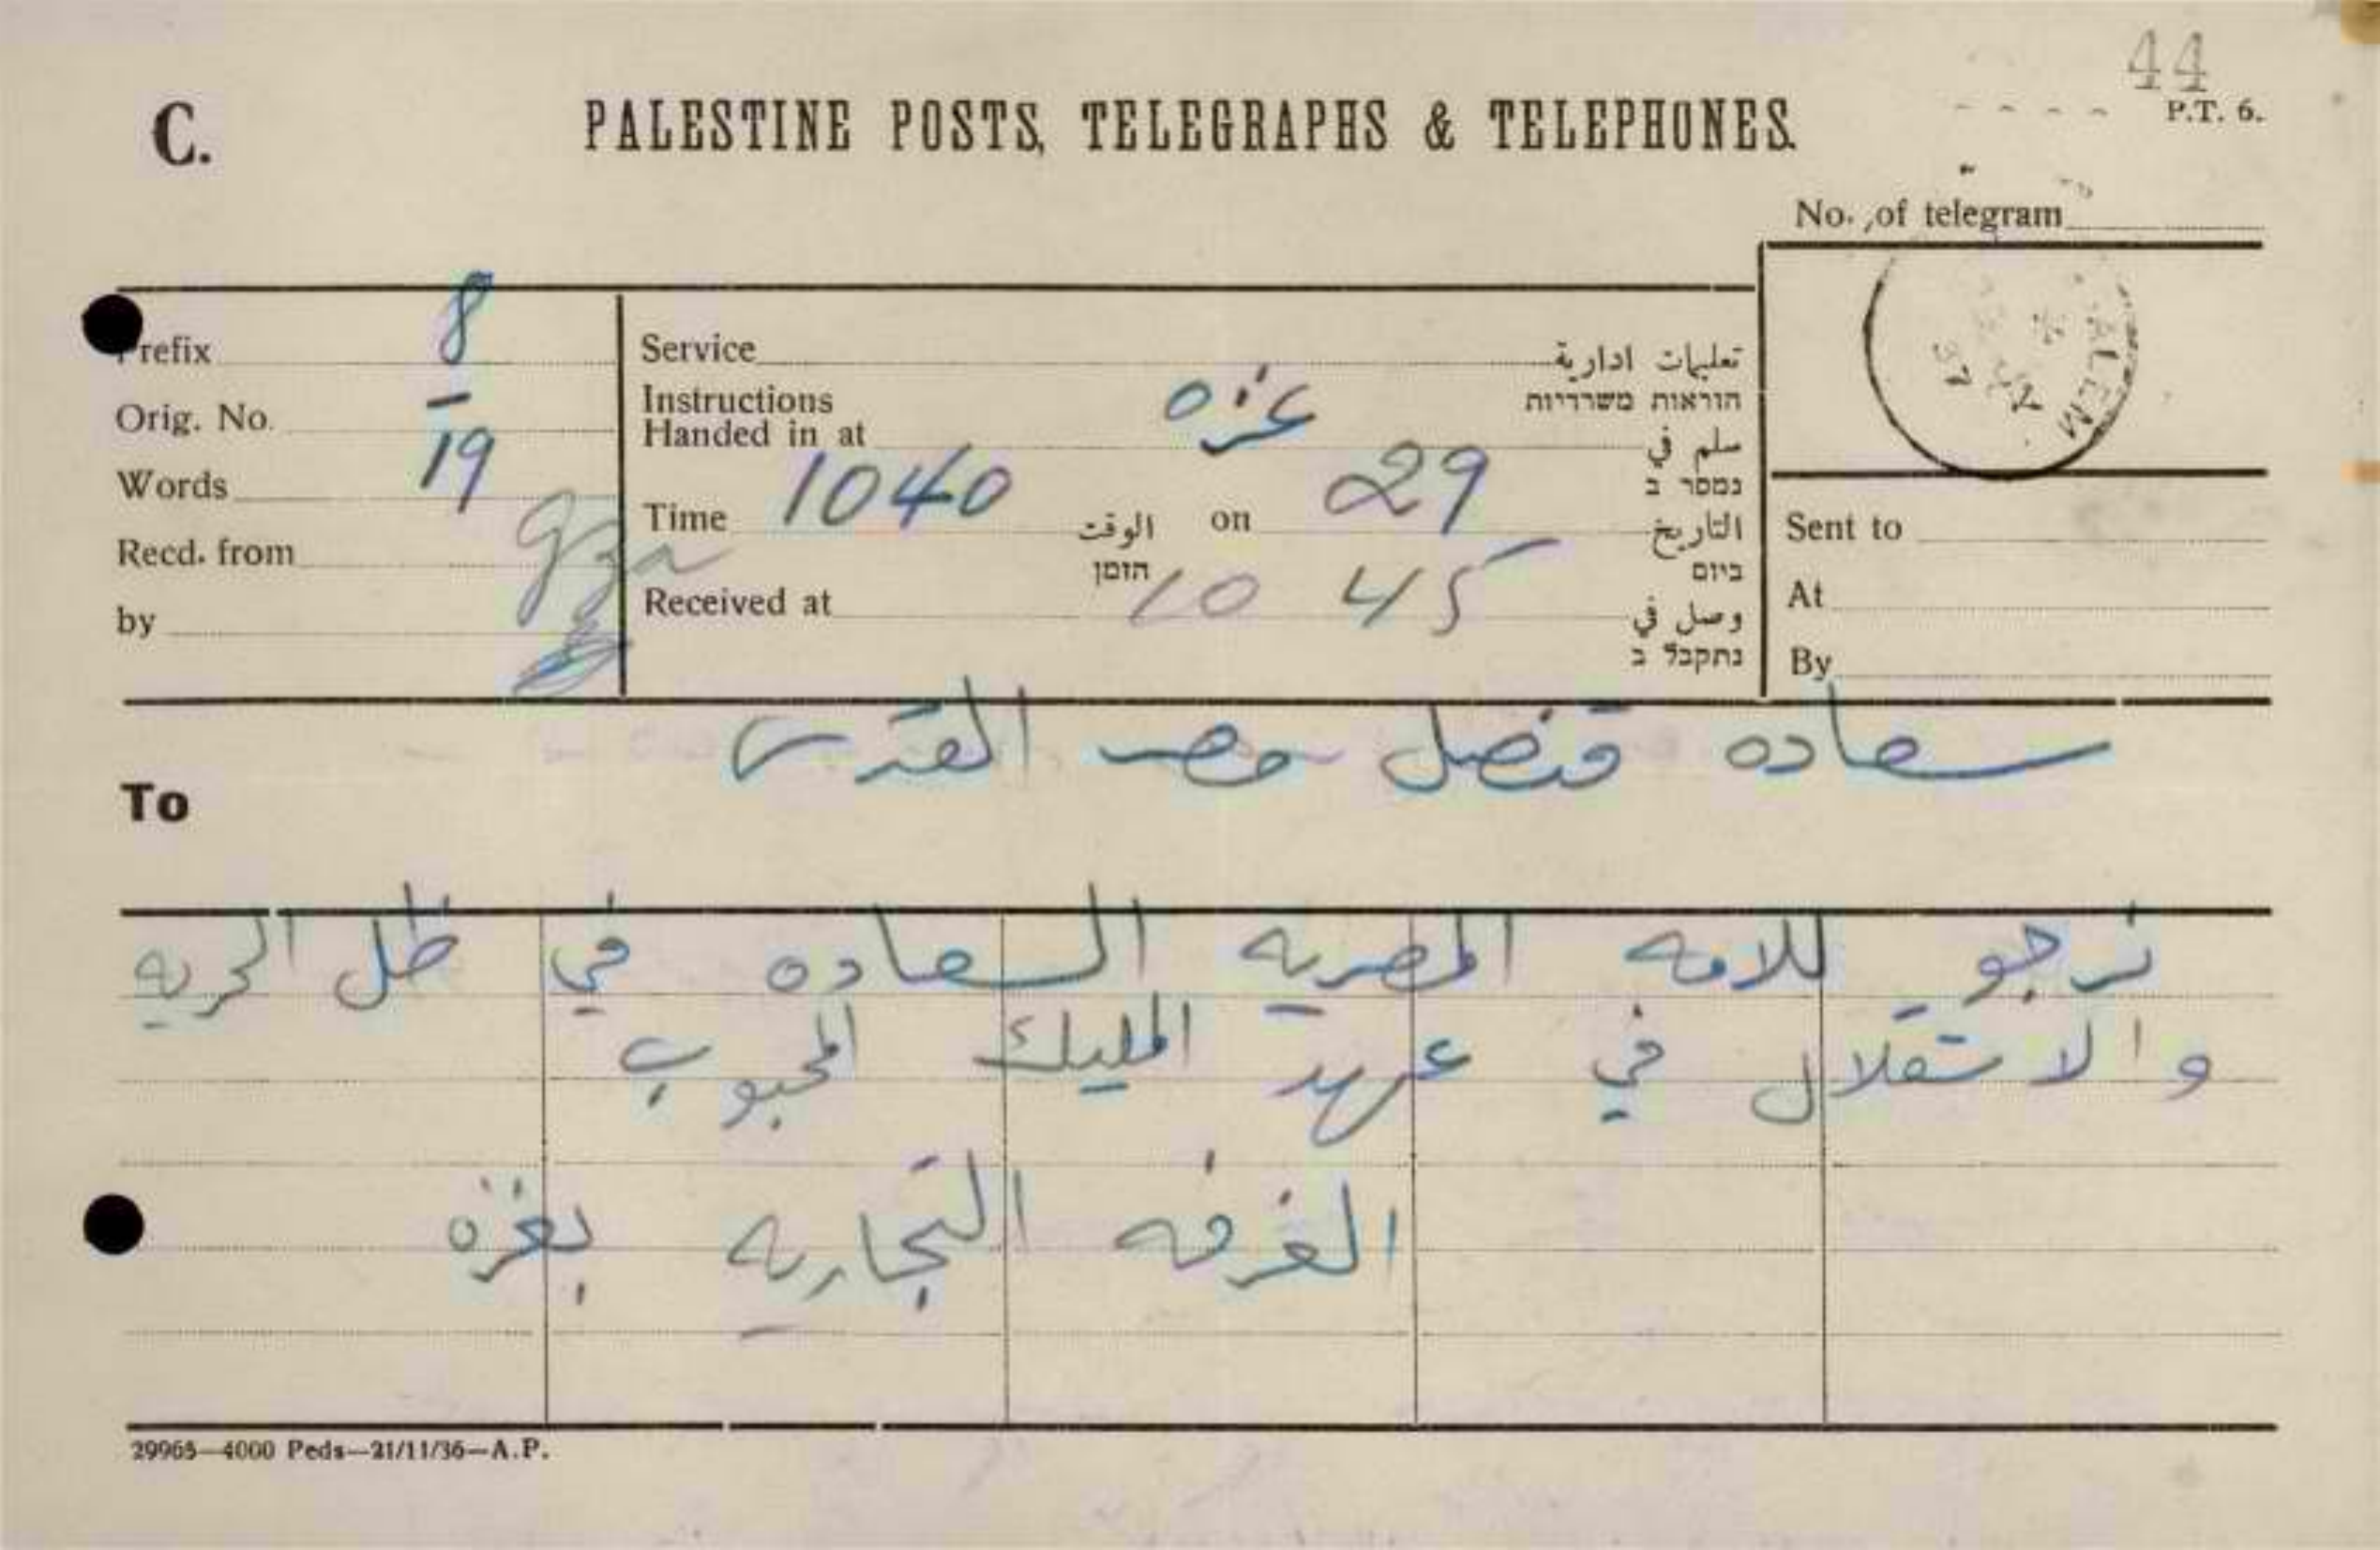 44
C. PALESTINE POSTS, TELEGRAPHS & TELEPHONES. P.T. 6.
No. of telegram
Prefix 8
Orig. No. –
Words 19
Recd. from Gza
by
Service تعليمات ادارية
Instructions הוראות משרדיות
Handed in at غزه سلم في
נמסר ב
Time 1040 الوقت on 29 التاريخ
הזמן ביום
Received at 10 45 وصل في
נתקבל ב
ALEM
37
Sent to
At
By
To سعاده قنصل مصر القدس
نرجو للامه المصريه السعاده في ظل الحريه
والاستقلال في عهد المليك المحبوب
الغرفه التجاريه بغزه
29965—4000 Peds—21/11/36—A.P.